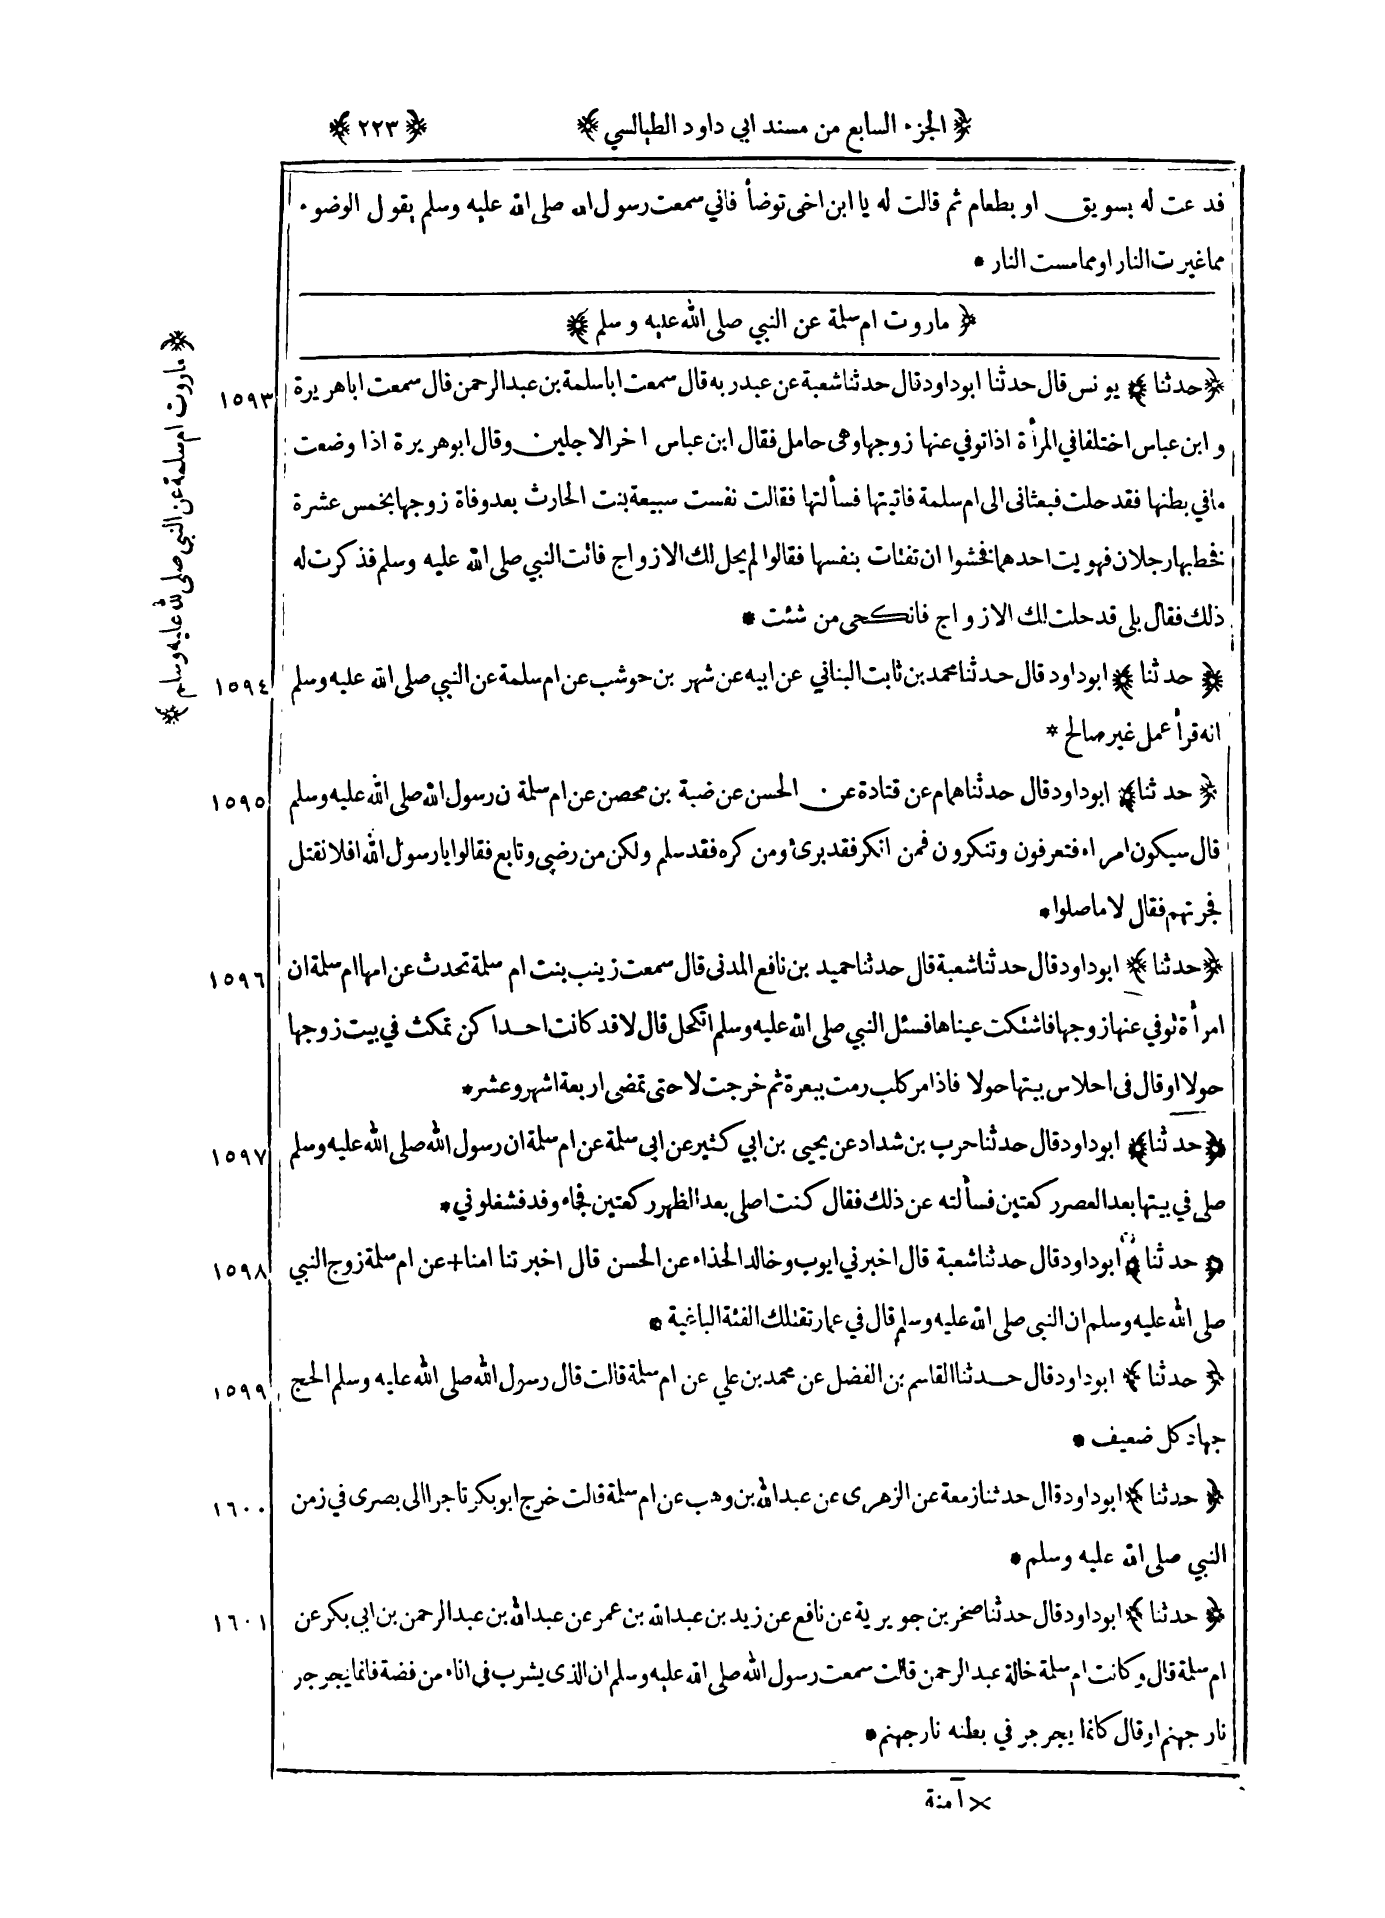 ﴿ الجزء السابع من مسند ابي داود الطيالسي ﴾ ﴿ ٢٢٣ ﴾
فدعت له بسويق او بطعام ثم قالت له يا ابن اخى توضأ فاني سمعت رسول الله صلى الله عليه وسلم يقول الوضوء
مما غيرت النار او مما مست النار *
﴿ ماروت ام سلمة عن النبي صلى الله عليه وسلم ﴾
﴿ ماروت ام سلمة عن النبي صلى الله عليه وسلم ﴾
١٥٩٣ ﴿ حدثنا ﴾ يونس قال حدثنا ابو داود قال حدثنا شعبة عن عبد ربه قال سمعت ابا سلمة بن عبد الرحمن قال سمعت ابا هريرة
و ابن عباس اختلفا في المرأة اذا توفي عنها زوجها وهى حامل فقال ابن عباس اخر الاجلين وقال ابو هريرة اذا وضعت
ما في بطنها فقد حلت فبعثانى الى ام سلمة فاتيتها فسألتها فقالت نفست سبيعة بنت الحارث بعد وفاة زوجها بخمس عشرة
فخطبها رجلان فهويت احدهما فخشوا ان تفتات بنفسها فقالوا لم يحل لك الازواج فاتت النبي صلى الله عليه وسلم فذكرت له
ذلك فقال بلى قد حلت لك الازواج فانكحى من شئت *
١٥٩٤ ﴿ حدثنا ﴾ ابو داود قال حدثنا محمد بن ثابت البناني عن ابيه عن شهر بن حوشب عن ام سلمة عن النبي صلى الله عليه وسلم
انه قرأ عمل غير صالح *
١٥٩٥ ﴿ حدثنا ﴾ ابو داود قال حدثنا همام عن قتادة عن الحسن عن ضبة بن محصن عن ام سلمة ن رسول الله صلى الله عليه وسلم
قال سيكون امراء فتعرفون وتنكرون فمن انكر فقد برئ ومن كره فقد سلم ولكن من رضي وتابع فقالوا يا رسول الله افلا نقتل
فجرتهم فقال لا ما صلوا *
١٥٩٦ ﴿ حدثنا ﴾ ابو داود قال حدثنا شعبة قال حدثنا حميد بن نافع المدنى قال سمعت زينب بنت ام سلمة تحدث عن امها ام سلمة ان
امرأة توفي عنها زوجها فاشتكت عيناها فسئل النبي صلى الله عليه وسلم اتكحل قال لا قد كانت احداكن تمكث في بيت زوجها
حولا او قال فى احلاس بيتها حولا فاذا مر كلب رمت ببعرة ثم خرجت لا حتى تمضى اربعة اشهر وعشر *
١٥٩٧ ﴿ حدثنا ﴾ ابو داود قال حدثنا حرب بن شداد عن يحيى بن ابي كثير عن ابى سلمة عن ام سلمة ان رسول الله صلى الله عليه وسلم
صلى في بيتها بعد العصر ركعتين فسألته عن ذلك فقال كنت اصلى بعد الظهر ركعتين فجاء وفد فشغلوني *
١٥٩٨ ﴿ حدثنا ﴾ ابو داود قال حدثنا شعبة قال اخبرني ايوب وخالد الحذاء عن الحسن قال اخبرتنا امنا+ عن ام سلمة زوج النبي
صلى الله عليه وسلم ان النبى صلى الله عليه وسلم قال في عمار تقتلك الفئة الباغية *
١٥٩٩ ﴿ حدثنا ﴾ ابو داود قال حدثنا القاسم بن الفضل عن محمد بن علي عن ام سلمة قالت قال رسول الله صلى الله عليه وسلم الحج
جهاد كل ضعيف *
١٦٠٠ ﴿ حدثنا ﴾ ابو داود قال حدثنا زمعة عن الزهرى عن عبد الله بن وهب عن ام سلمة قالت خرج ابو بكر تاجرا الى بصرى في زمن
النبي صلى الله عليه وسلم *
١٦٠١ ﴿ حدثنا ﴾ ابو داود قال حدثنا صخر بن جويرية عن نافع عن زيد بن عبد الله بن عمر عن عبد الله بن عبد الرحمن بن ابى بكر عن
ام سلمة قال وكانت ام سلمة خالة عبد الرحمن قالت سمعت رسول الله صلى الله عليه وسلم ان الذى يشرب فى اناء من فضة فانما يجرجر
نار جهنم او قال كانما يجرجر في بطنه نار جهنم *
× آمنة